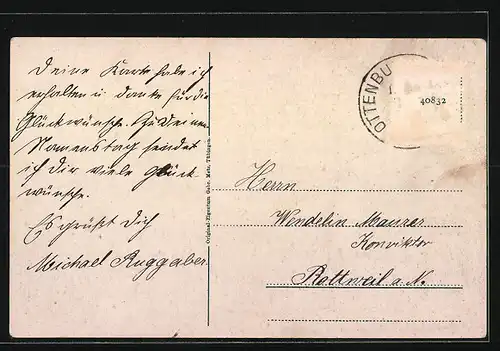 Deine Karte habe ich
erhalten u. danke für die
Glückwünsche. Zu Deinem
Namenstag sendet
ich dir viele Glück
wünsche.
Es grüßt Dich
Michael Ruggaber
Original-Eigentum Gebr. Metz, Tübingen
OTTENBU
40832
Herrn
Wendelin Maurer
Konviktor
Rottweil a. N.